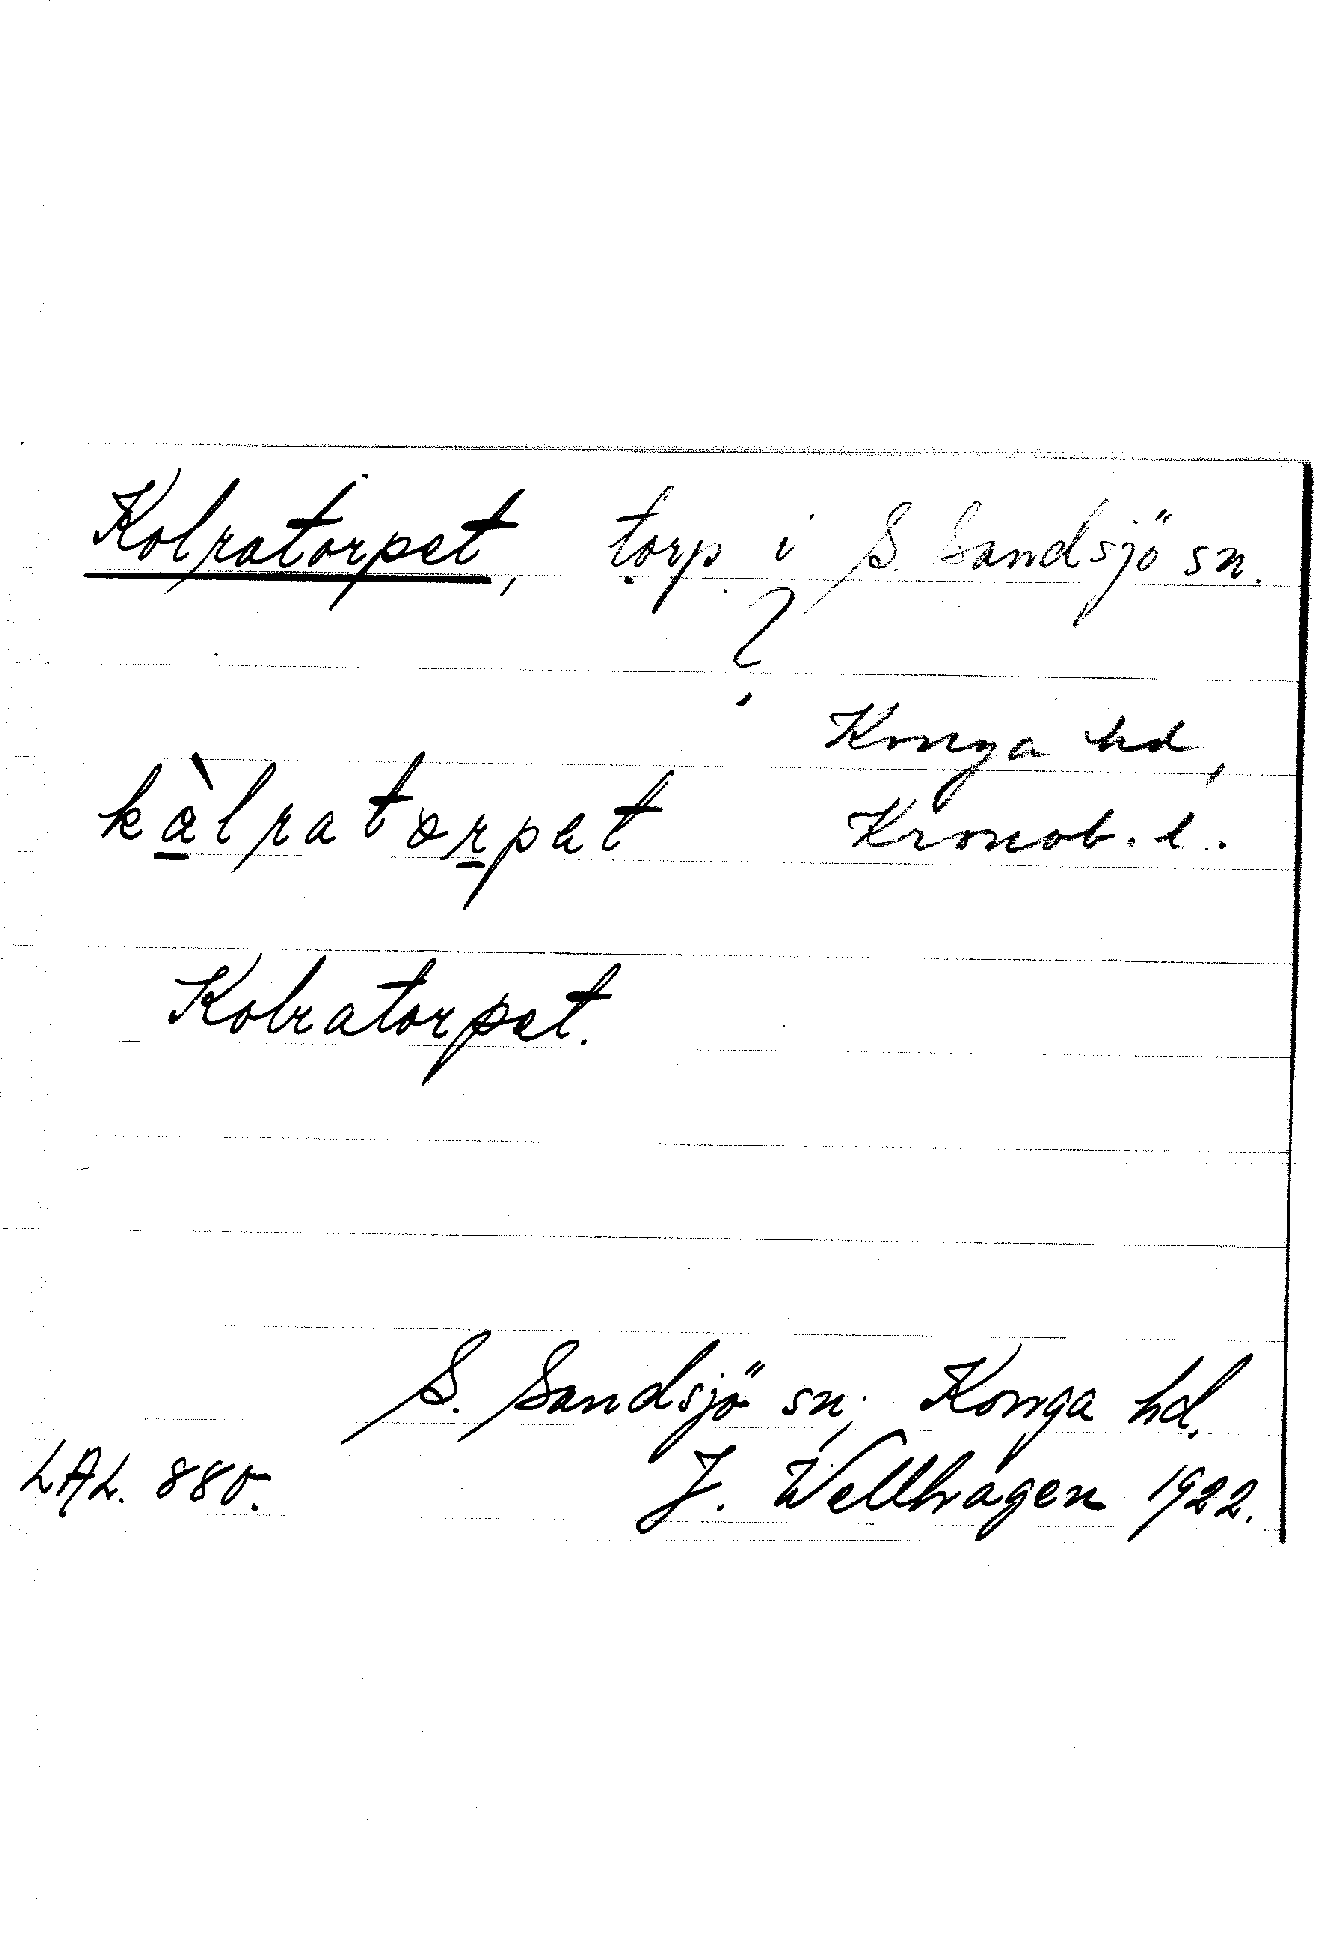 Kolratorpet, torp i S. Sandsjö sn.
?
Konga hd,
kàlratorpet Kronob. l.
Kolratorpet.
S. Sandsjö sn, Konga hd.
LAL. 880. J. Wellhagen 1922.